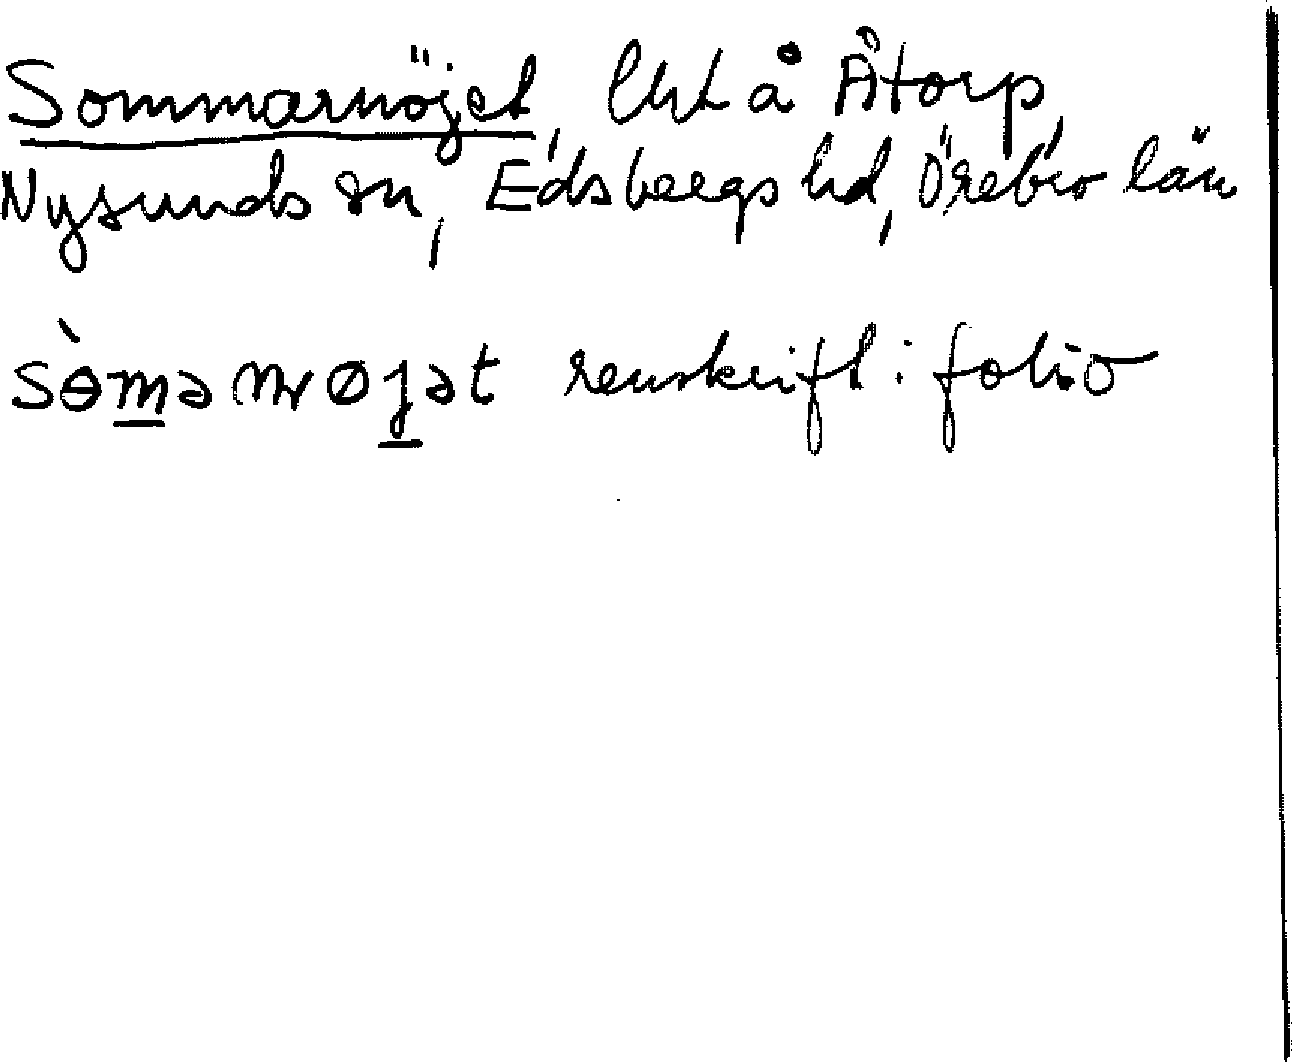 Sommarnöjet, lht å Åtorp,
Nysunds sn, Edsbergs hd, Örebro län
renskrift i folio